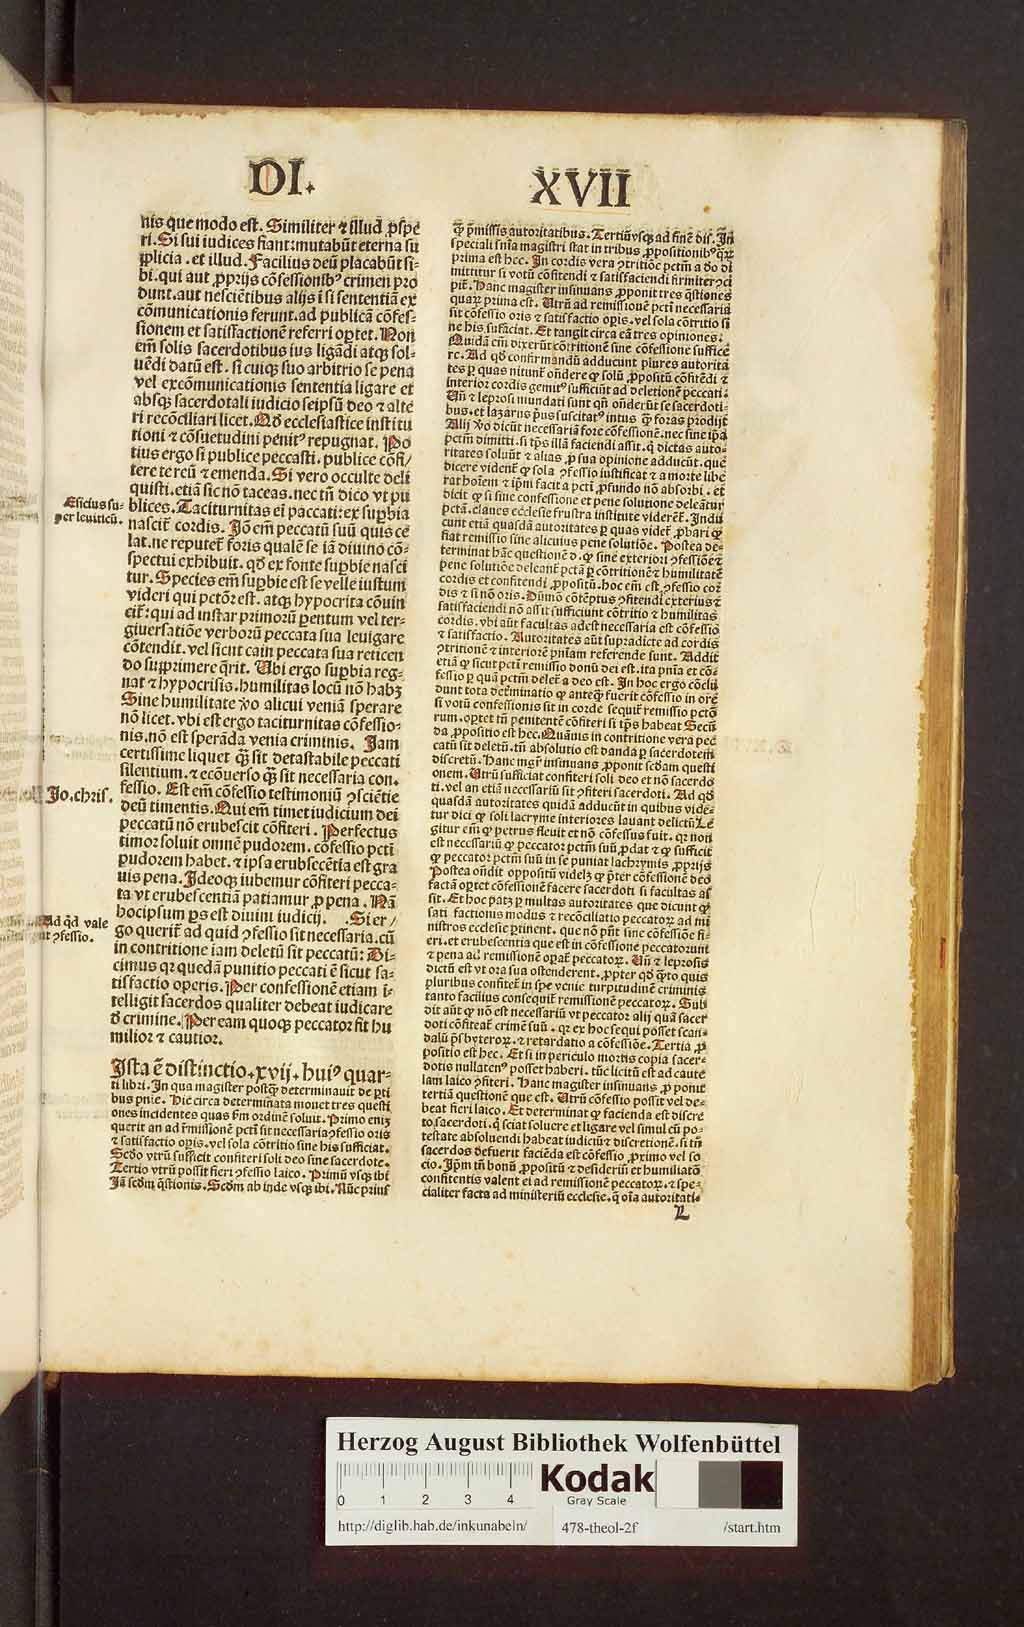 DI. XVII
nis que modo est. Similiter ⁊ illud ꝓspe
ri. Si sui iudices fiant: mutabūt eterna su
pplicia. et illud. Facilius deū placabūt si-
bi. qui aut ꝓprijs cōfessionibꝰ crimen pro
dunt. aut nesciētibus alijs ī si sententiā ex
cōmunicationis ferunt. ad publicā cōfes-
sionem et satisfactionē referri oportet. Non
em̄ solis sacerdotibus ius ligādi atqꝫ sol-
uēdi datū est. si cuiqꝫ suo arbitrio se pena
vel excōmunicationis sententia ligare et
absqꝫ sacerdotali iudicio seipsū deo ⁊ alta
ri recōciliari licet. Qd̄ ecclesiastice institu
tioni ⁊ cōsuetudini penitꝰ repugnat. Po
tius ergo si publice peccasti. publice cōfi/
tere te reū ⁊ emenda. Si vero occulte deli
quisti. etiā sic nō taceas. nec tn̄ dico vt pu
Esicius su-
per leuiticū.
blices. Taciturnitas ei paccati: ex supbia
nascit̄ cordis. Jō em̄ peccatū suū quis ce
lat. ne reputet̄ foris qualē se iā diuino cō-
spectui exhibuit. qd̄ ex fonte supbie nasci
tur. Species em̄ supbie est se velle iustum
videri qui pctōr est. atqꝫ hypocrita cōuin
cit̄: qui ad instar primorū parentum vel ter-
giuersatiōe verborū peccata sua leuigare
cōtendit. vel sicut cain peccata sua reticen
do supprimere q̄rit. Ubi ergo supbia reg-
nat ⁊ hypocrisis. humilitas locū nō habꝫ
Sine humilitate v̄o alicui veniā sperare
nō licet. vbi est ergo taciturnitas cōfessio-
nis. nō est sperāda venia criminis. Jam
certissime liquet q̄ꝫ sit detastabile peccati
silentium. ⁊ ecōuerso q̄ꝫ sit necessaria con-
Jo. chris.
fessio. Est em̄ cōfessio testimoniū ꝯsciētie
deū timentis. Qui em̄ timet iudicium dei
peccatū nō erubescit cōfiteri. Perfectus
timor soluit omnē pudorem. cōfessio pcti
pudorem habet. ⁊ ipsa erubscētia est gra
uis pena. Jdeoqꝫ iubemur cōfiteri pecca-
ta vt erubescentiā patiamur ꝓ pena. Nā
hocipsum pars est diuini iudicij. Si er/
Ad qd̄ vale
at ꝯfessio.
go querit̄ ad quid ꝯfessio sit necessaria. cū
in contritione iam deletū sit peccatū: Di-
cimus qꝛ quedā punitio peccati ē sicut sa-
tisfactio operis. Per confessionē etiam ī-
telligit sacerdos qualiter debeat iudicare
d̄ crimine. Per eam quoqꝫ peccator fit hu
milior ⁊ cautior.
Jsta ē distinctio. xvij. huiꝰ quar-
ti libri. Jn qua magister postq̄ꝫ determinauit de parti
bus pnie. Hic circa determinata mouet tres questi
ones incidentes quas s̄m ordinē soluit. Primo enim
querit an ad remissionē pcti sit necessaria ꝯfessio oris
⁊ satisfactio opis. vel sola cōtritio sine his sufficiat.
Scdo vtrū sufficit confiteri soli deo sine sacerdote.
Tertio vtrū possit fieri ꝯfessio laico. Primū vsqꝫ ibi
Jā scdm q̄stionis. Scdm ab inde vsqꝫ ibi. Nūc prius
q̄ꝫ p̄missis autoritatibus. Tertiū vsqꝫ ad finē dis. Jn
speciali snīa magistri stat in tribus ꝓpositionibꝰ quaꝝ
prima est hec. Jn cordis vera ꝯtritiōe pctm̄ a deo di
mittitur si votū cōfitendi ⁊ satisfaciendi firmiter ꝯci
pit̄. Hanc magister insinuans ꝓponit tres q̄stiones
quaꝝ prima est. Utrū ad remissionē pcti necessaria
sit cōfessio oris ⁊ satisfactio opis. vel sola cōtritio si
ne his sufficiat. Et tangit circa eā tres opiniones.
Quidā em̄ dixerūt cōtritionē sine cōfessione sufficē
re. Ad qd̄ confirmandū adducunt plures autorita
tes per quas nitunt̄ ondere ꝙ solū ꝓpositū cōfitēdi ⁊
interior cordis gemitꝰ sufficiūt ad deletionē peccati.
Un̄ ⁊ leprosi mundati sunt qn̄ onderūt se sacerdoti-
bus. et lazarus prius suscitatꝰ intus q̄ꝫ foras prodijt
Alij v̄o dicūt necessariā fore cōfessionē. nec sine ipsa
pctm̄ dimitti. si temps illā faciendi assit. q̄ dictas auto-
ritates soluūt ⁊ alias ꝓ sua opinione adducūt. que
dicere vident̄ ꝙ sola ꝯfessio iustificat ⁊ a morte libe
rat hoīem ⁊ ipsum facit a pcti ꝓfundo nō absorbi. et
dicit ꝙ si sine confessione et pene solutione deleātur
pctā. claues ecclesie frustra institute viderēt̄. Jndu
cunt etiā quasdā autoritates per quas videt̄ ꝓbari ꝙ
fiat remissio sine alicuius pene solutiōe. Postea de-
terminat hāc questionē d. ꝙ sine exteriori ꝯfessiōe ⁊
pene solutiōe deleant̄ pctā per cōtritionē ⁊ humilitatē
cordis et confitendi ꝓpositū. hoc em̄ est ꝯfessio cor
dis ⁊ si nō oris. Dūmō cōtēptus ꝯfitendi exterius ⁊
satisfaciendi nō assit sufficiunt cōtritio ⁊ humilitas
cordis. vbi aūt facultas adest necessaria est cōfessio
⁊ satisfactio. Autoritates aūt supradicte ad cordis
ꝯtritionē ⁊ interiorē pniam referende sunt. Addit
etiā ꝙ sicut pcti remissio donū dei est. ita pnīa et cō-
fessio per quā pctm̄ delet̄ a deo est. Jn hoc ergo cōclu
dunt tota determinatio ꝙ anteq̄ꝫ fuerit cōfessio in ore
si votū confessionis sit in corde sequit̄ remissio pctō
rum. oportet tn̄ penitentē cōfiteri si temps habeat Secū
da ꝓpositio est hec. Quāuis in contritione vera pec
catū sit deletū. tn̄ absolutio est danda per sacerdotem
discretū. Hanc mgr̄ insinuans ꝓponit scdam questi
onem. Utrū sufficiat confiteri soli deo et nō sacerdo
ti. vel an etiā necessariū sit ꝯfiteri sacerdoti. Ad qd̄
quasdā autoritates quidā adducūt in quibus vide-
tur dici ꝙ soli lacryme interiores lauant delictū Le
gitur em̄ ꝙ petrus fleuit et nō cōfessus fuit. qꝛ non
est necessariū ꝙ peccator pctm̄ suū ꝓdat ⁊ ꝙ sufficit
ꝙ peccator pctm̄ suū in se puniat lachrymis ꝓprijs
Postea ondit oppositū videlꝫ ꝙ preter cōfessionē deo
factā oportet cōfessionē facere sacerdoti si facultas af
sit. Et hoc patꝫ per multas autoritates que dicunt ꝙ
sati factionis modus ⁊ recōciliatio peccatoꝝ ad mi
nistros ecclesie pertinent. que nō pn̄t sine cōfessiōe fi-
eri. et erubescentia que est in cōfessione peccatorum
⁊ pena ad remissionē opat̄ peccatoꝝ. Un̄ ⁊ leprosis
dictū est vt ora sua ostenderent. ꝓpter qd̄ q̄nto quis
pluribus confitet̄ in spe venie turpitudinē criminis
tanto facilius consequit̄ remissionē peccatoꝝ. Subi
dit aūt ꝙ nō est necessariū vt peccator alij quā sacer
doti cōfiteat̄ crimē suū. qꝛ ex hoc sequi posset scan-
dalū presbyteroꝝ. ⁊ retardatio a cōfessiōe. Tertia ꝓ
positio est hec. Et si in periculo mortis copia sacer-
dotis nullatenꝰ posset haberi. tūc licitū est ad caute
lam laico ꝯfiteri. Hanc magister insinuans ꝓponit
tertiā questionē que est. Utrū cōfessio possit vel de-
beat fieri laico. Et determinat ꝙ facienda est discre
to sacerdoti. q̄ sciat soluere et ligare vel simul cū po-
testate absoluendi habeat iudiciū ⁊ discretionē. si tn̄
sacerdos defuerit faciēda est cōfessio ꝓximo vel so
cio. Jpsum tn̄ bonū ꝓpositū ⁊ desideriū et humiliatō
confitentis valent ei ad remissionē peccatoꝝ. ⁊ spe-
cialiter facta ad ministeriū ecclesie. q̄ oīa autoritati-
L
Herzog August Bibliothek Wolfenbüttel
0 1 2 3 4
Kodak
Gray Scale
http://diglib.hab.de/inkunabeln/ 478-theol-2f /start.htm